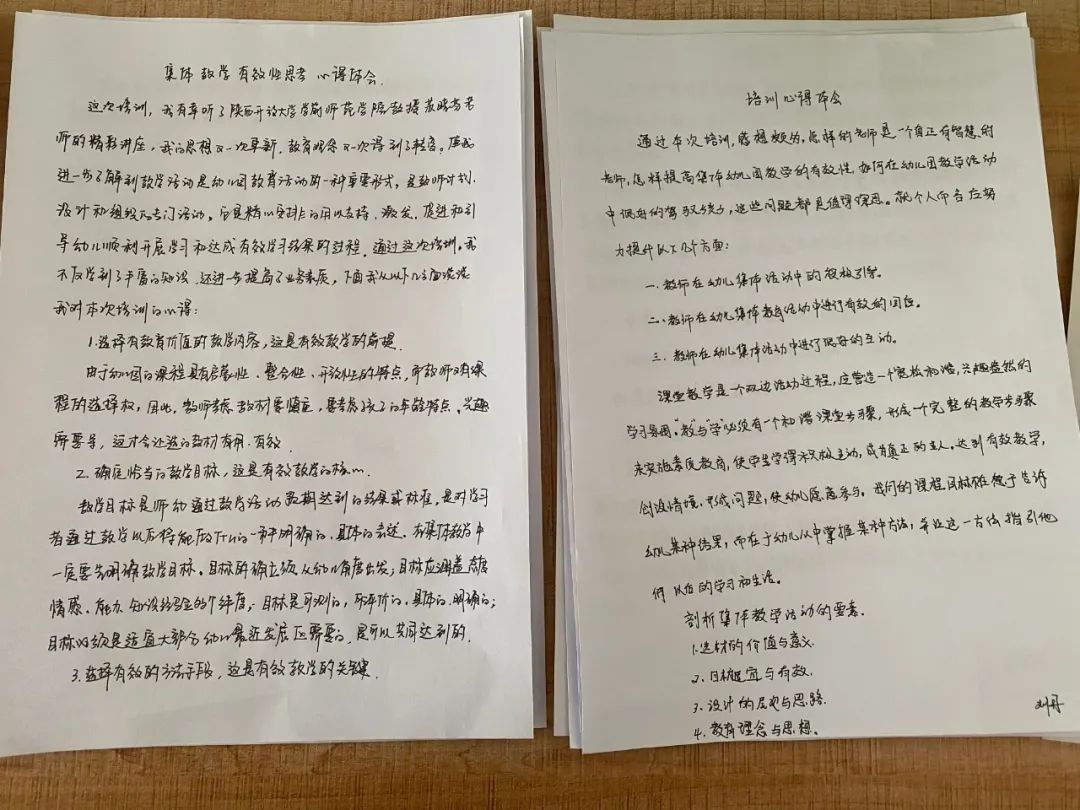 集体教学有效性思考 心得体会.
这次培训，我有幸听了陕西开放大学学前师范学院教授苏晓芳老
师的精彩讲座，我的思想又一次革新.教育观念又一次得到了转变。使我
进一步了解到教学活动是幼儿园教育活动的一种重要形式，是教师计划.
设计和组织的专门活动。它是精心安排的用以支持、激发、促进和引
导幼儿顺利开展学习和达成有效学习结果的过程。通过这次培训。我
不仅学到了丰富的知识.还进一步提高了业务素质，下面我从以下几方面谈谈
我对本次培训的心得：
1.选择有教育价值的教学内容，这是有效教学的前提.
由于幼儿园的课程具有启蒙性、整合性、开放性的特点，而教师又有课
程的选择权，因此，教师考虑教材要慎重，要考虑孩子的年龄特点、兴趣
需要等，这才会让选的教材有用.有效.
2.确定恰当的教学目标，这是有效教学的核心.
教学目标是师幼通过教学活动预期达到的结果或标准。是对学习
者通过教学以后将能做什么的一种明确的.具体的表述.在集体教学中
一定要先明确教学目标。目标的确立须从幼儿角度出发；目标应涵盖态度
情感、能力、知识经验的个纬度；目标是可测的，可评价的.具体的.明确的；
目标必须是适宜大部分幼儿最近发展区需要的，是可以共同达到的.
3.选择有效的方法手段，这是有效教学的关键.
培训心得体会
通过本次培训，感想颇为，怎样的老师是一个真正有智慧的
老师，怎样提高集体幼儿园教学的有效性.如何在幼儿园教学活动
中保有的驾驭能力，这些问题都是值得深思。就个人而言应努
力提升以下几个方面：
一.教师在幼儿集体活动中的积极引导.
二.教师在幼儿集体教育活动中进行有效的回应。
三.教师在幼儿集体活动中进行良好的互动。
课堂教学是一个双边活动过程，应营造一个宽松和谐，兴趣盎然的
学习氛围。"教"与"学"必须有一个和谐课堂步骤，形成一个完整的教学步骤
来实施素质教育，使学生学得积极主动，成为真正的主人。达到有效教学，
创设情境，问题，使幼儿愿意参与。我们的课程目标不在于告诉
幼儿某种结果，而在于幼儿从中掌握某种方法，并以这一方法指引他
们以后的学习和生活。
剖析集体教学活动的要素.
1.选材的价值与意义.
2.目标适宜与有效.
3.设计的层次与思路.
4.教育理念与思想。
刘丹